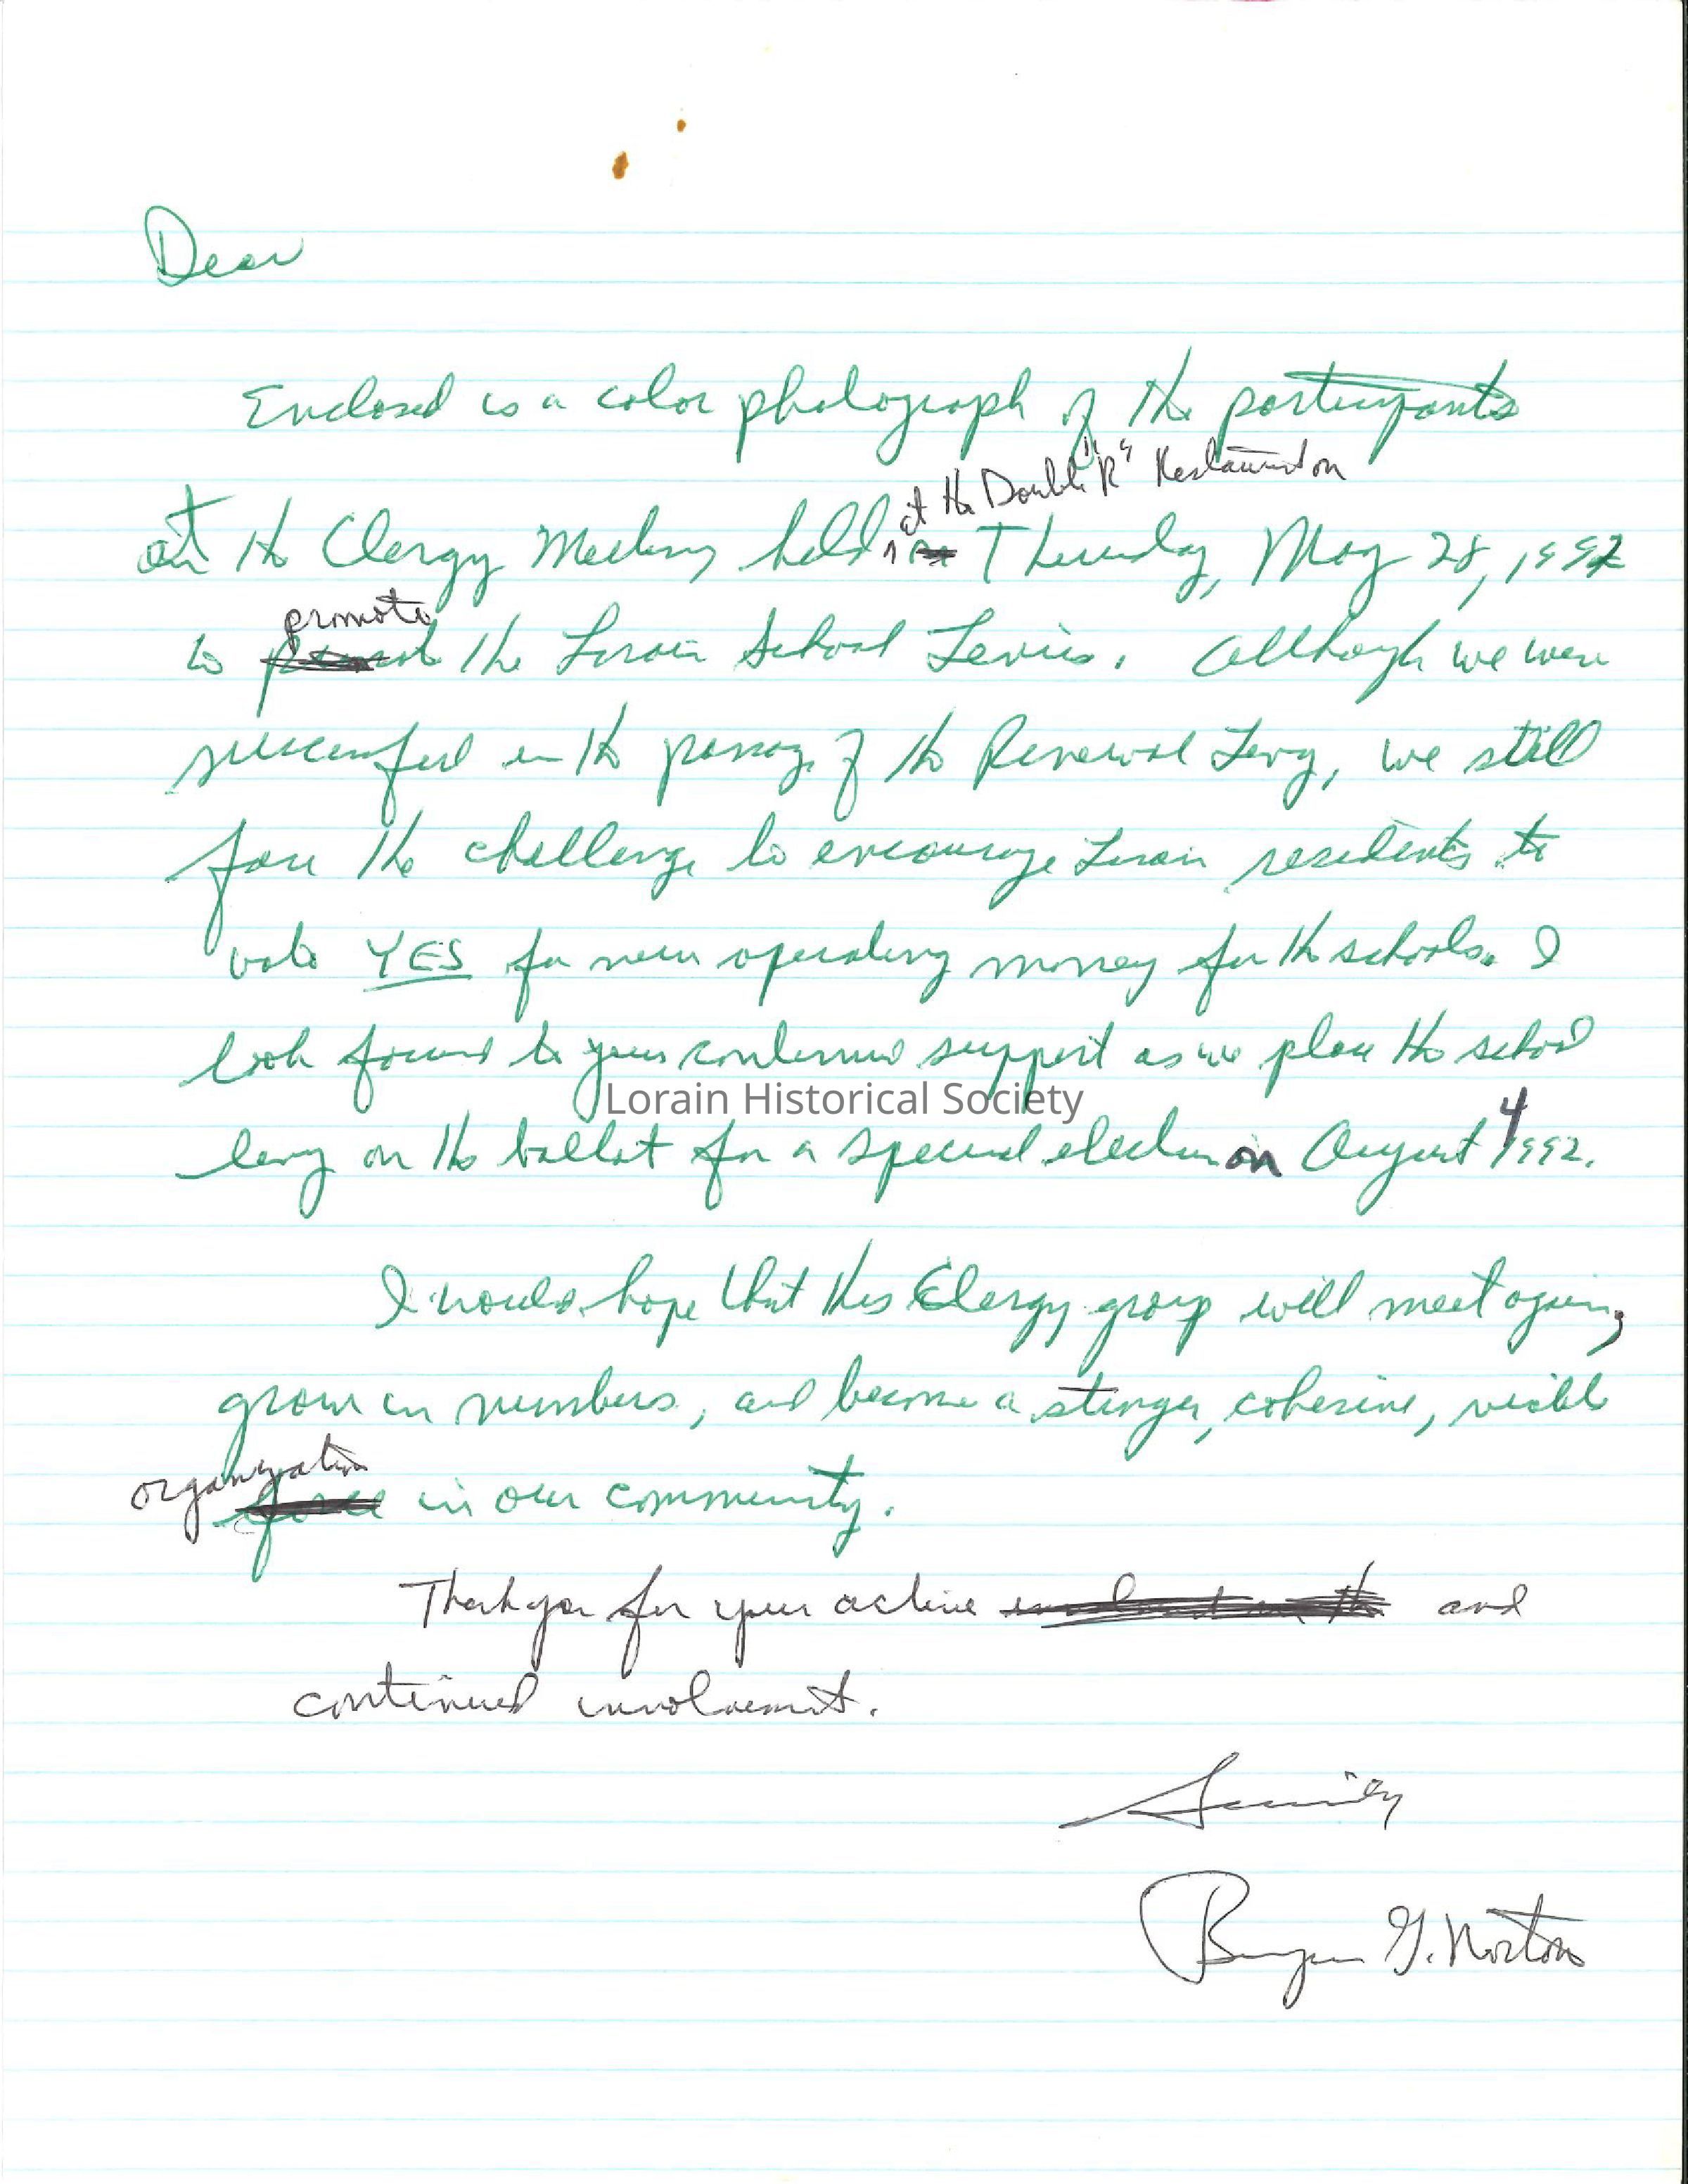 Dear
Enclosed is a color photograph of the participants
at the Double "R" Restaurant on
at the Clergy Meeting held Thursday, May 28, 1992
promote
to the Lorain School Levies. Although we were
successful in the passage of the Renewal Levy, we still
face the challenge to encourage Lorain residents to
vote YES for new operating money for the schools. I
look forward to your continued support as we place the school
Lorain Historical Society
4
levy on the ballot for a special election on August 1992.
I would hope that this Clergy group will meet again,
grow in numbers, and become a stronger, cohesive, visible
organization
force in our community.
Thank you for your active and
continued involvement.
Sincerely
G. Norton